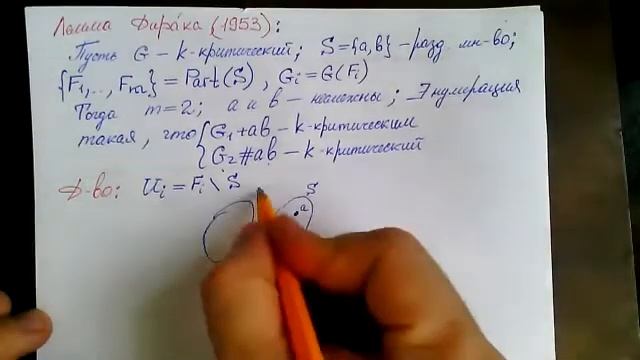 Лемма Дирака (1953):
Пусть G – k-критический; S={a,b} – разд. мн-во;
{F₁,..,Fₘ} = Part(S), Gᵢ=G(Fᵢ)
Тогда m=2; a и b – несмежны; Ǝ нумерация
такая, что { G₁+ab – k-критическим
G₂#ab – k-критический
Д-во: Uᵢ = Fᵢ \ S
S
a